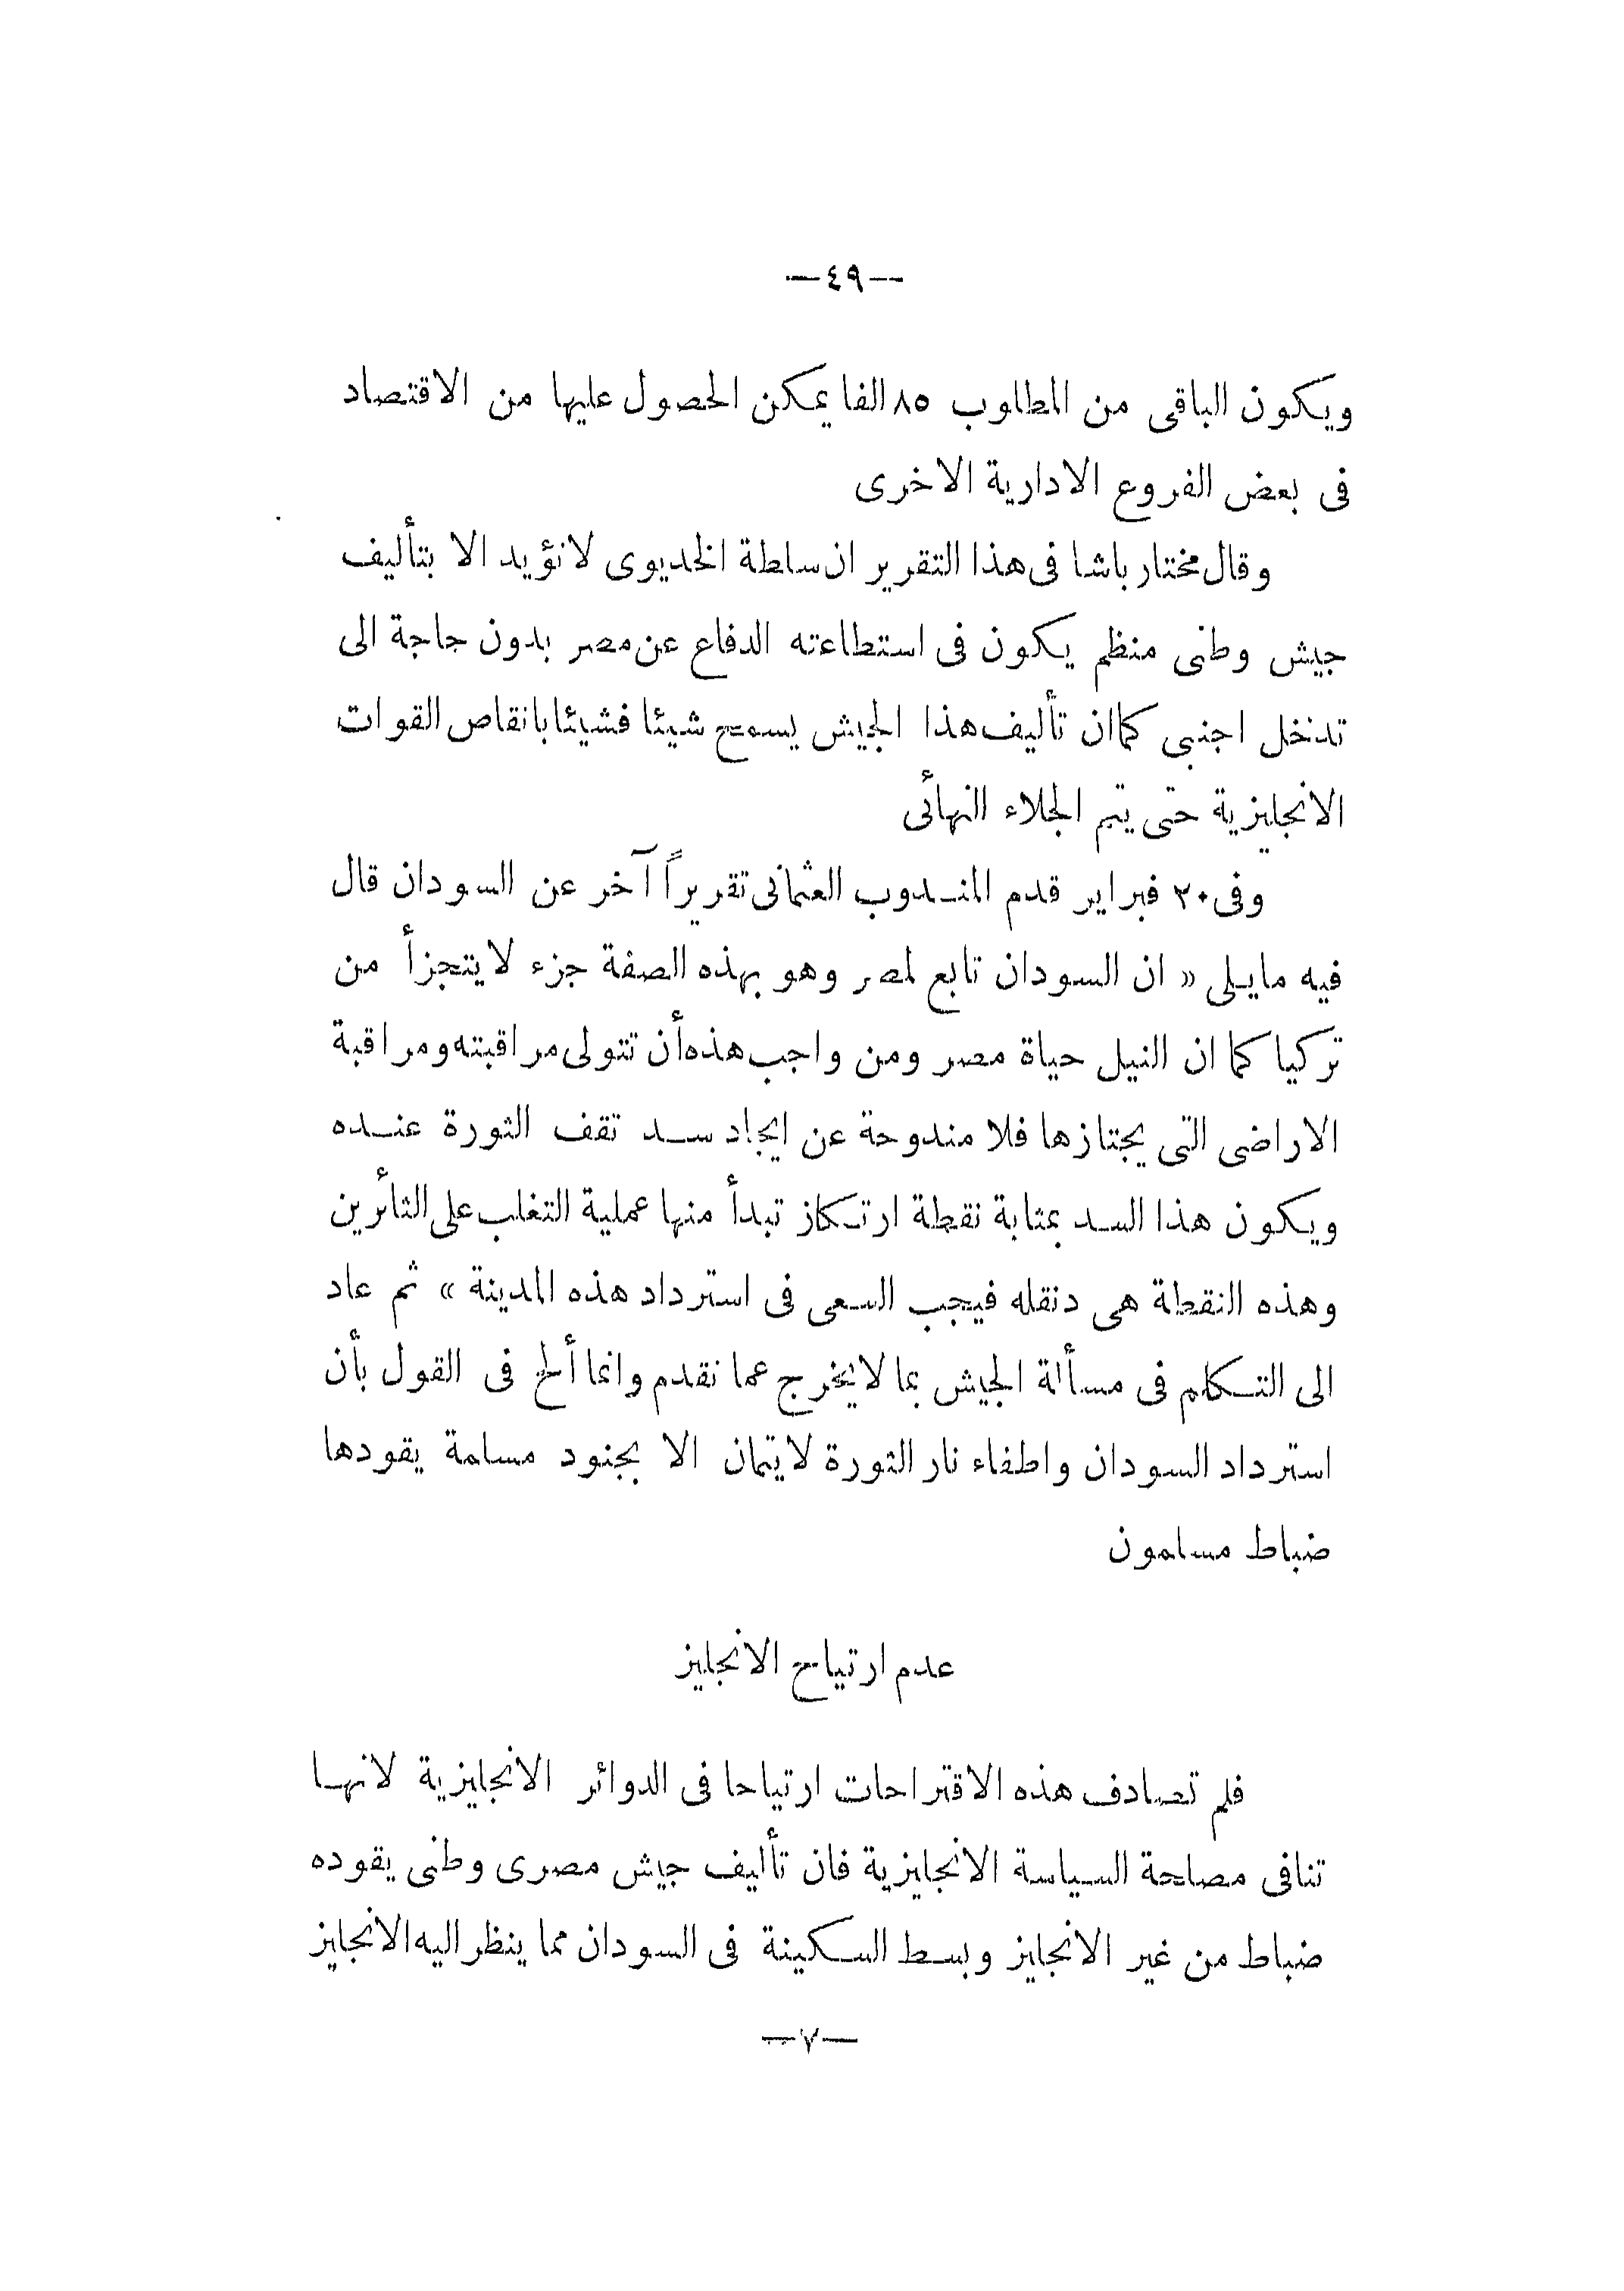 —٤٩—
ويكون الباقى من المطلوب ٨٥ الفا يمكن الحصول عليها من الاقتصاد
فى بعض الفروع الادارية الاخرى
وقال مختار باشا فى هذا التقرير ان سلطة الخديوى لا تؤيد الا بتأليف
جيش وطنى منظم يكون فى استطاعته الدفاع عن مصر بدون حاجة الى
تدخل اجنبى كما ان تأليف هذا الجيش يسمح شيئا فشيئا بانقاص القوات
الانجليزية حتى يتم الجلاء النهائى
وفى ٢٠ فبراير قدم المندوب العثمانى تقريراً آخر عن السودان قال
فيه مايلى « ان السودان تابع لمصر وهو بهذه الصفة جزء لا يتجزأ من
تركيا كما ان النيل حياة مصر ومن واجب هذه أن تتولى مراقبته ومراقبة
الاراضى التى يجتازها فلا مندوحة عن ايجاد سد تقف الثورة عنده
ويكون هذا السد بمثابة نقطة ارتكاز تبدأ منها عملية التغلب على الثائرين
وهذه النقطة هى دنقله فيجب السعى فى استرداد هذه المدينة » ثم عاد
الى التكلم فى مسألة الجيش بما لا يخرج عما تقدم وانما ألح فى القول بأن
استرداد السودان واطفاء نار الثورة لا يتمان الا بجنود مسلمة يقودها
ضباط مسلمون
عدم ارتياح الانجليز
فلم تصادف هذه الاقتراحات ارتياحا فى الدوائر الانجليزية لانها
تنافى مصلحة السياسة الانجليزية فان تأليف جيش مصرى وطنى يقوده
ضباط من غير الانجليز وبسط السكينة فى السودان مما ينظر اليه الانجليز
—٧—